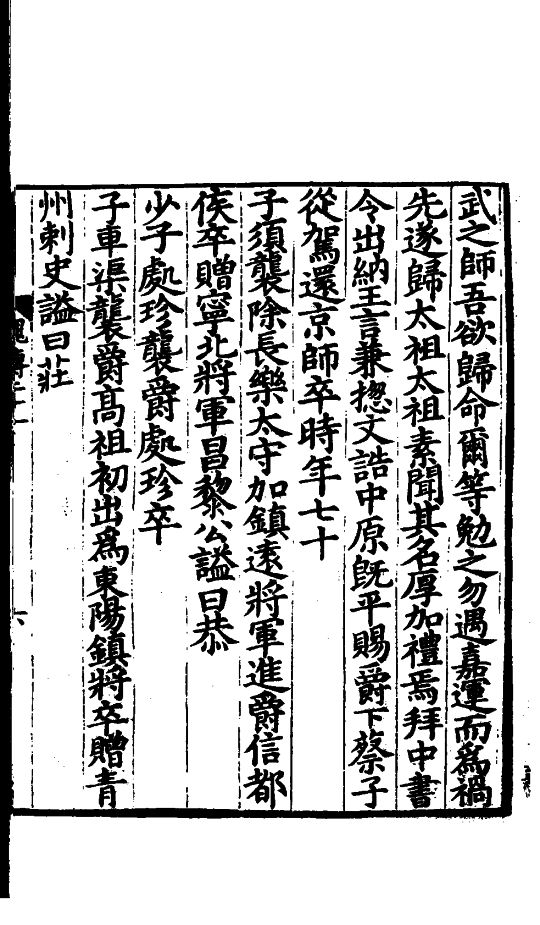 武之師吾欲歸命爾等勉之勿遇嘉運而爲禍
先遂歸太祖太祖素聞其名厚加禮焉拜中書
令出納王言兼揔文誥中原旣平賜爵下蔡子
從駕還京師卒時年七十
子須襲除長樂太守加鎮遠將軍進爵信都
侯卒贈寧北將軍昌黎公謚曰恭
少子處珍襲爵處珍卒
子車渠襲爵高祖初出爲東陽鎮將卒贈青
州刺史謚曰莊
六